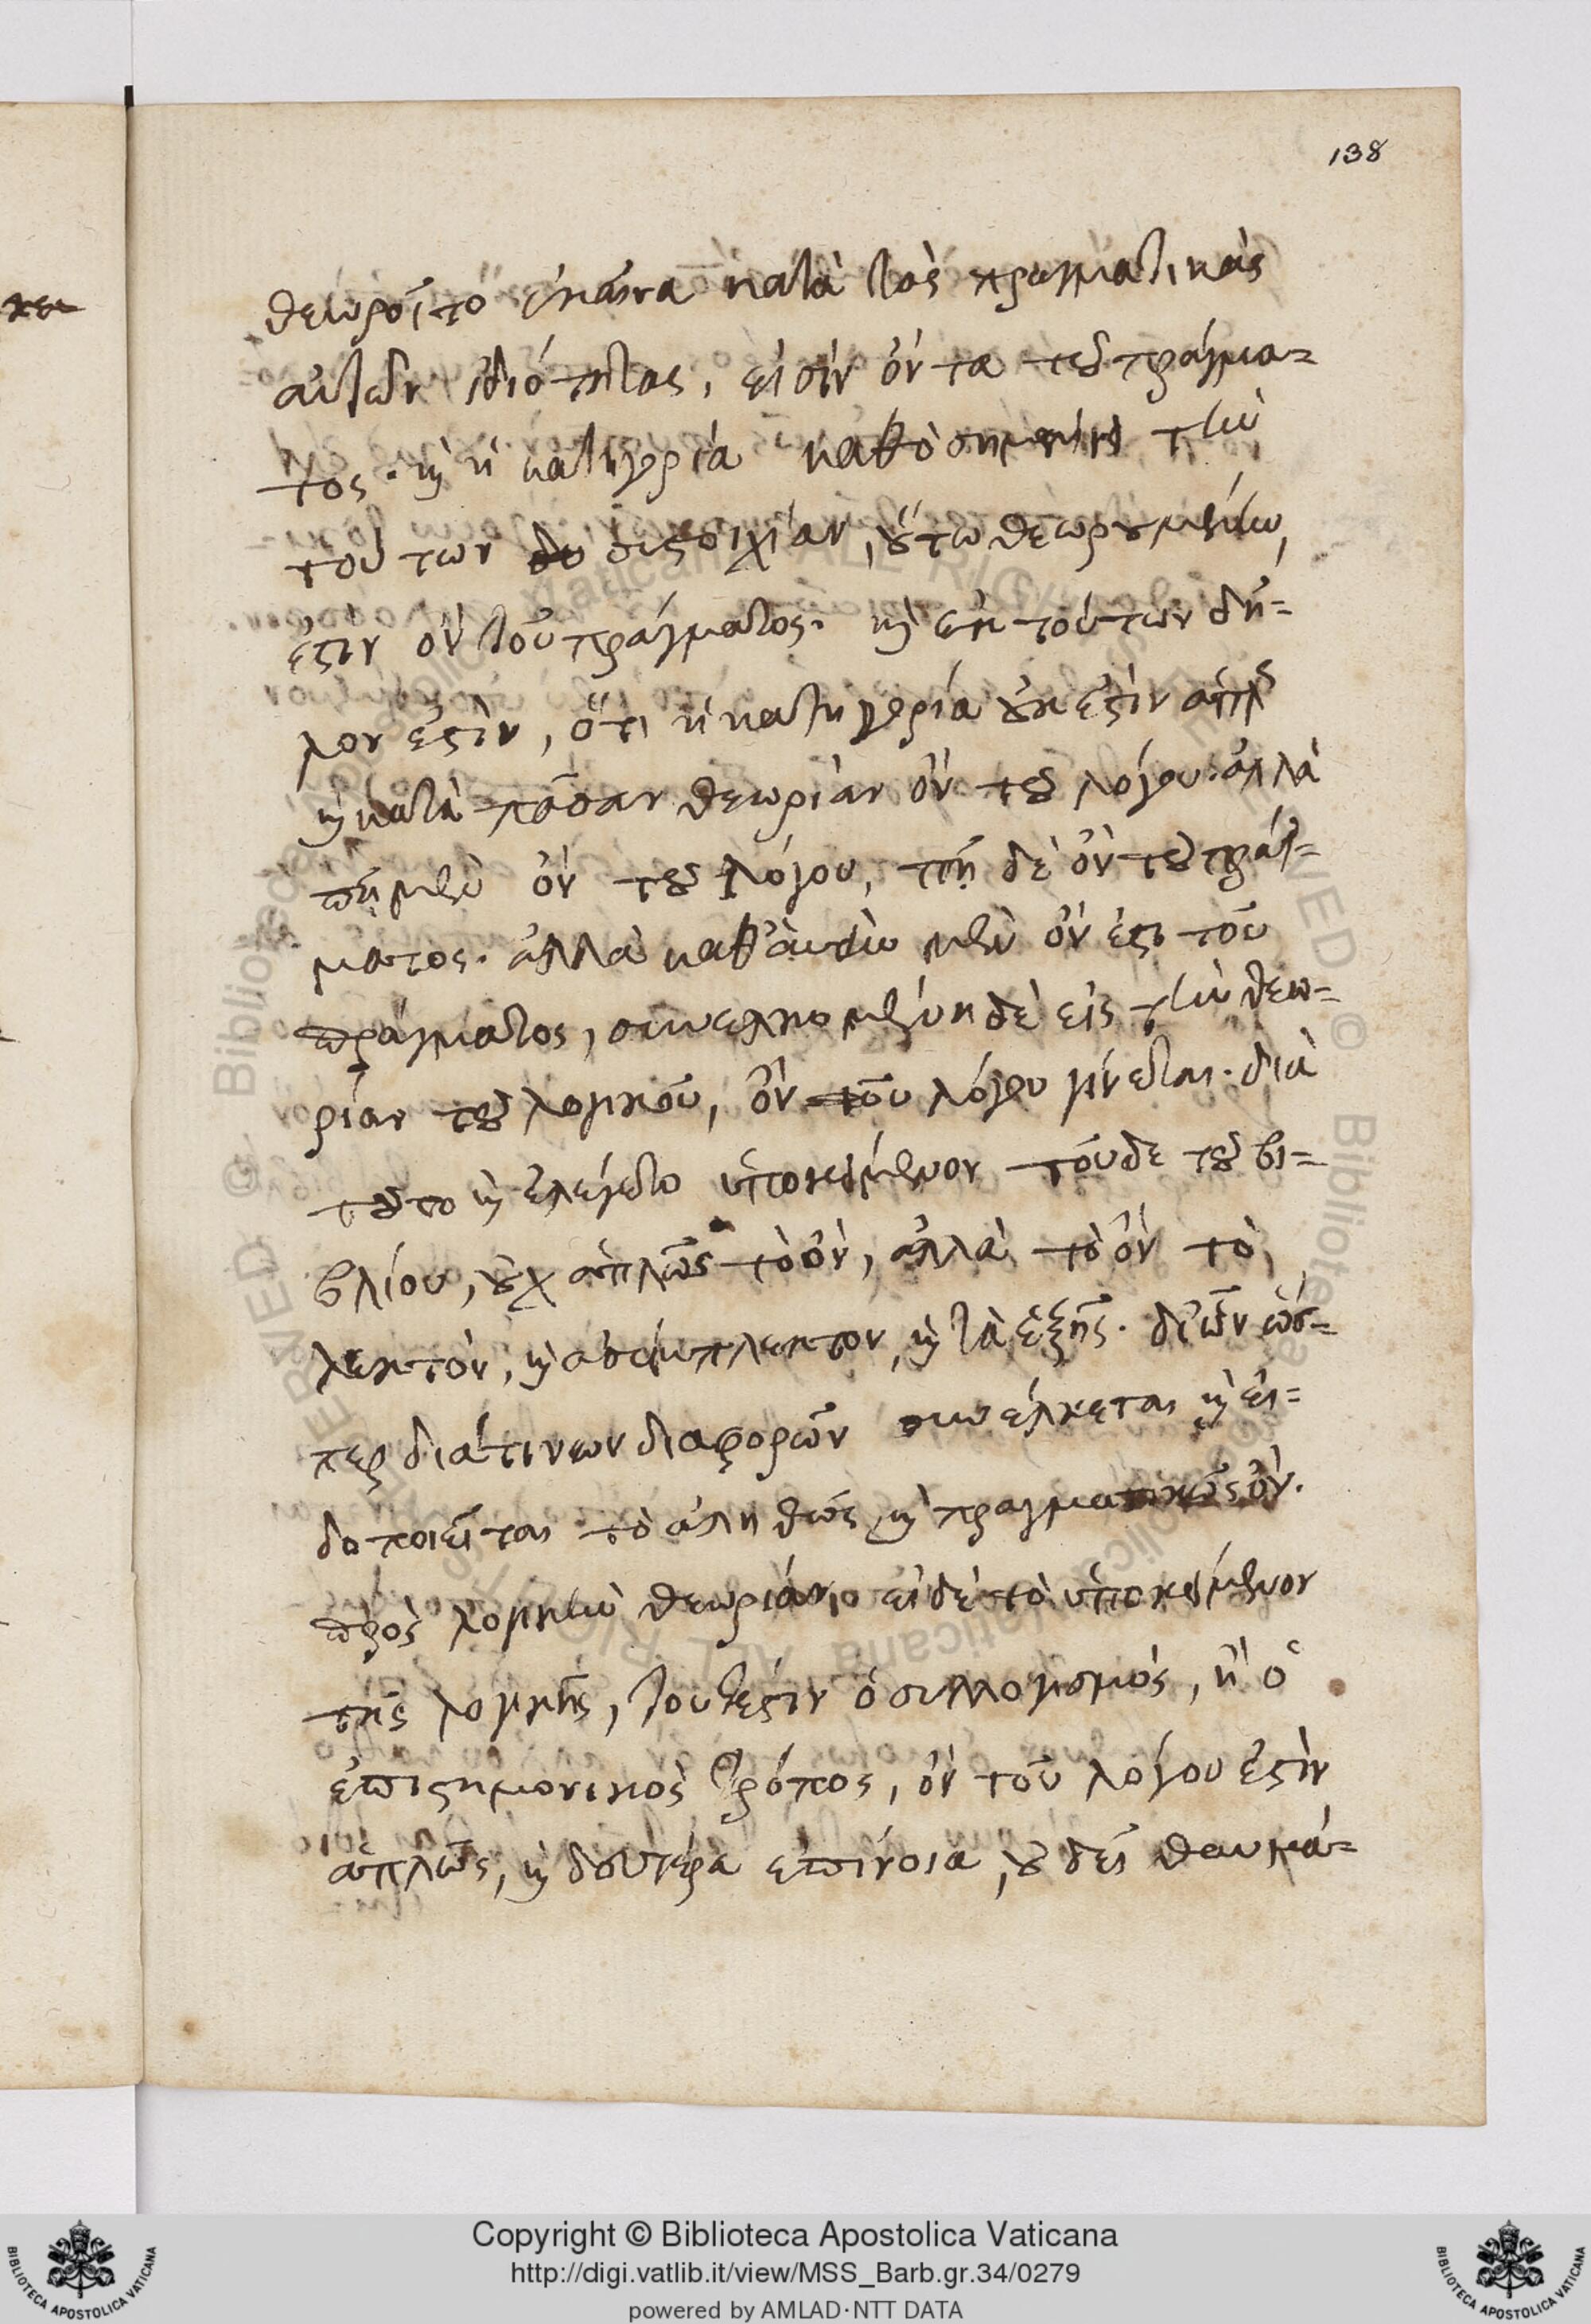 138
θεωροῖτο ἐκεῖνα κατὰ τὰς πραγματικὰς
αὐτῶν ἰδιότητας, εἰσὶν ὄντα τοῦ πράγμα=
τος. καὶ ἡ κατηγορία καθὸ σημαίνει τὴν
τούτων συστοιχίαν, οὕτω θεωρουμένην,
ἔστιν ὂν τοῦ πράγματος. καὶ ἐκ τούτων δῆ=
λον ἐστὶν, ὅτι ἡ κατηγορία οὐκ ἐστὶν ἁπλῶς
καὶ κατὰ πᾶσαν θεωρίαν ὂν τοῦ λόγου. ἀλλὰ
πῆ μὲν ὂν τοῦ λόγου, πῆ δὲ ὂν τοῦ πράγ=
ματος. ἀλλὰ καθ' ἀυτὴν μὲν ὂν ἐστι τοῦ
πράγματος, συνελκομένη δὲ εἰς τὴν θεω=
ρίαν τοῦ λογικοῦ, ὂν τοῦ λόγου γίνεται. διὰ
τοῦτο καὶ ἐλέγετο ὑποκείμενον τοῦδε τοῦ βι=
βλίου, οὐχ ἁπλῶς τὸ ὂν, ἀλλὰ τὸ ὂν τὸ
λεκτὸν, καὶ ἀσύμπλεκτον, καὶ τὰ ἑξῆς. δι' ὧν ὥσ=
περ διά τινων διαφορῶν συνέλκεται καὶ εἰ=
δοποιεῖται τὸ ἀληθῶς καὶ πραγματικῶς ὂν.
πρὸς λογικὴν θεωρίαν. εἰ δὲ τὸ ὑποκείμενον
τῆς λογικῆς, τουτέστιν ὁ συλλογισμὸς, ἢ ὁ
ἐπιστημονικὸς τρόπος, ὂν τοῦ λόγου ἐστὶν
ἁπλῶς, καὶ δευτέρα ἐπίνοια, οὐ δεῖ θαυμά=
Copyright © Biblioteca Apostolica Vaticana
http://digi.vatlib.it/view/MSS_Barb.gr.34/0279
powered by AMLAD·NTT DATA
BIBLIOTECA APOSTOLICA VATICANA
BIBLIOTECA APOSTOLICA VATICANA